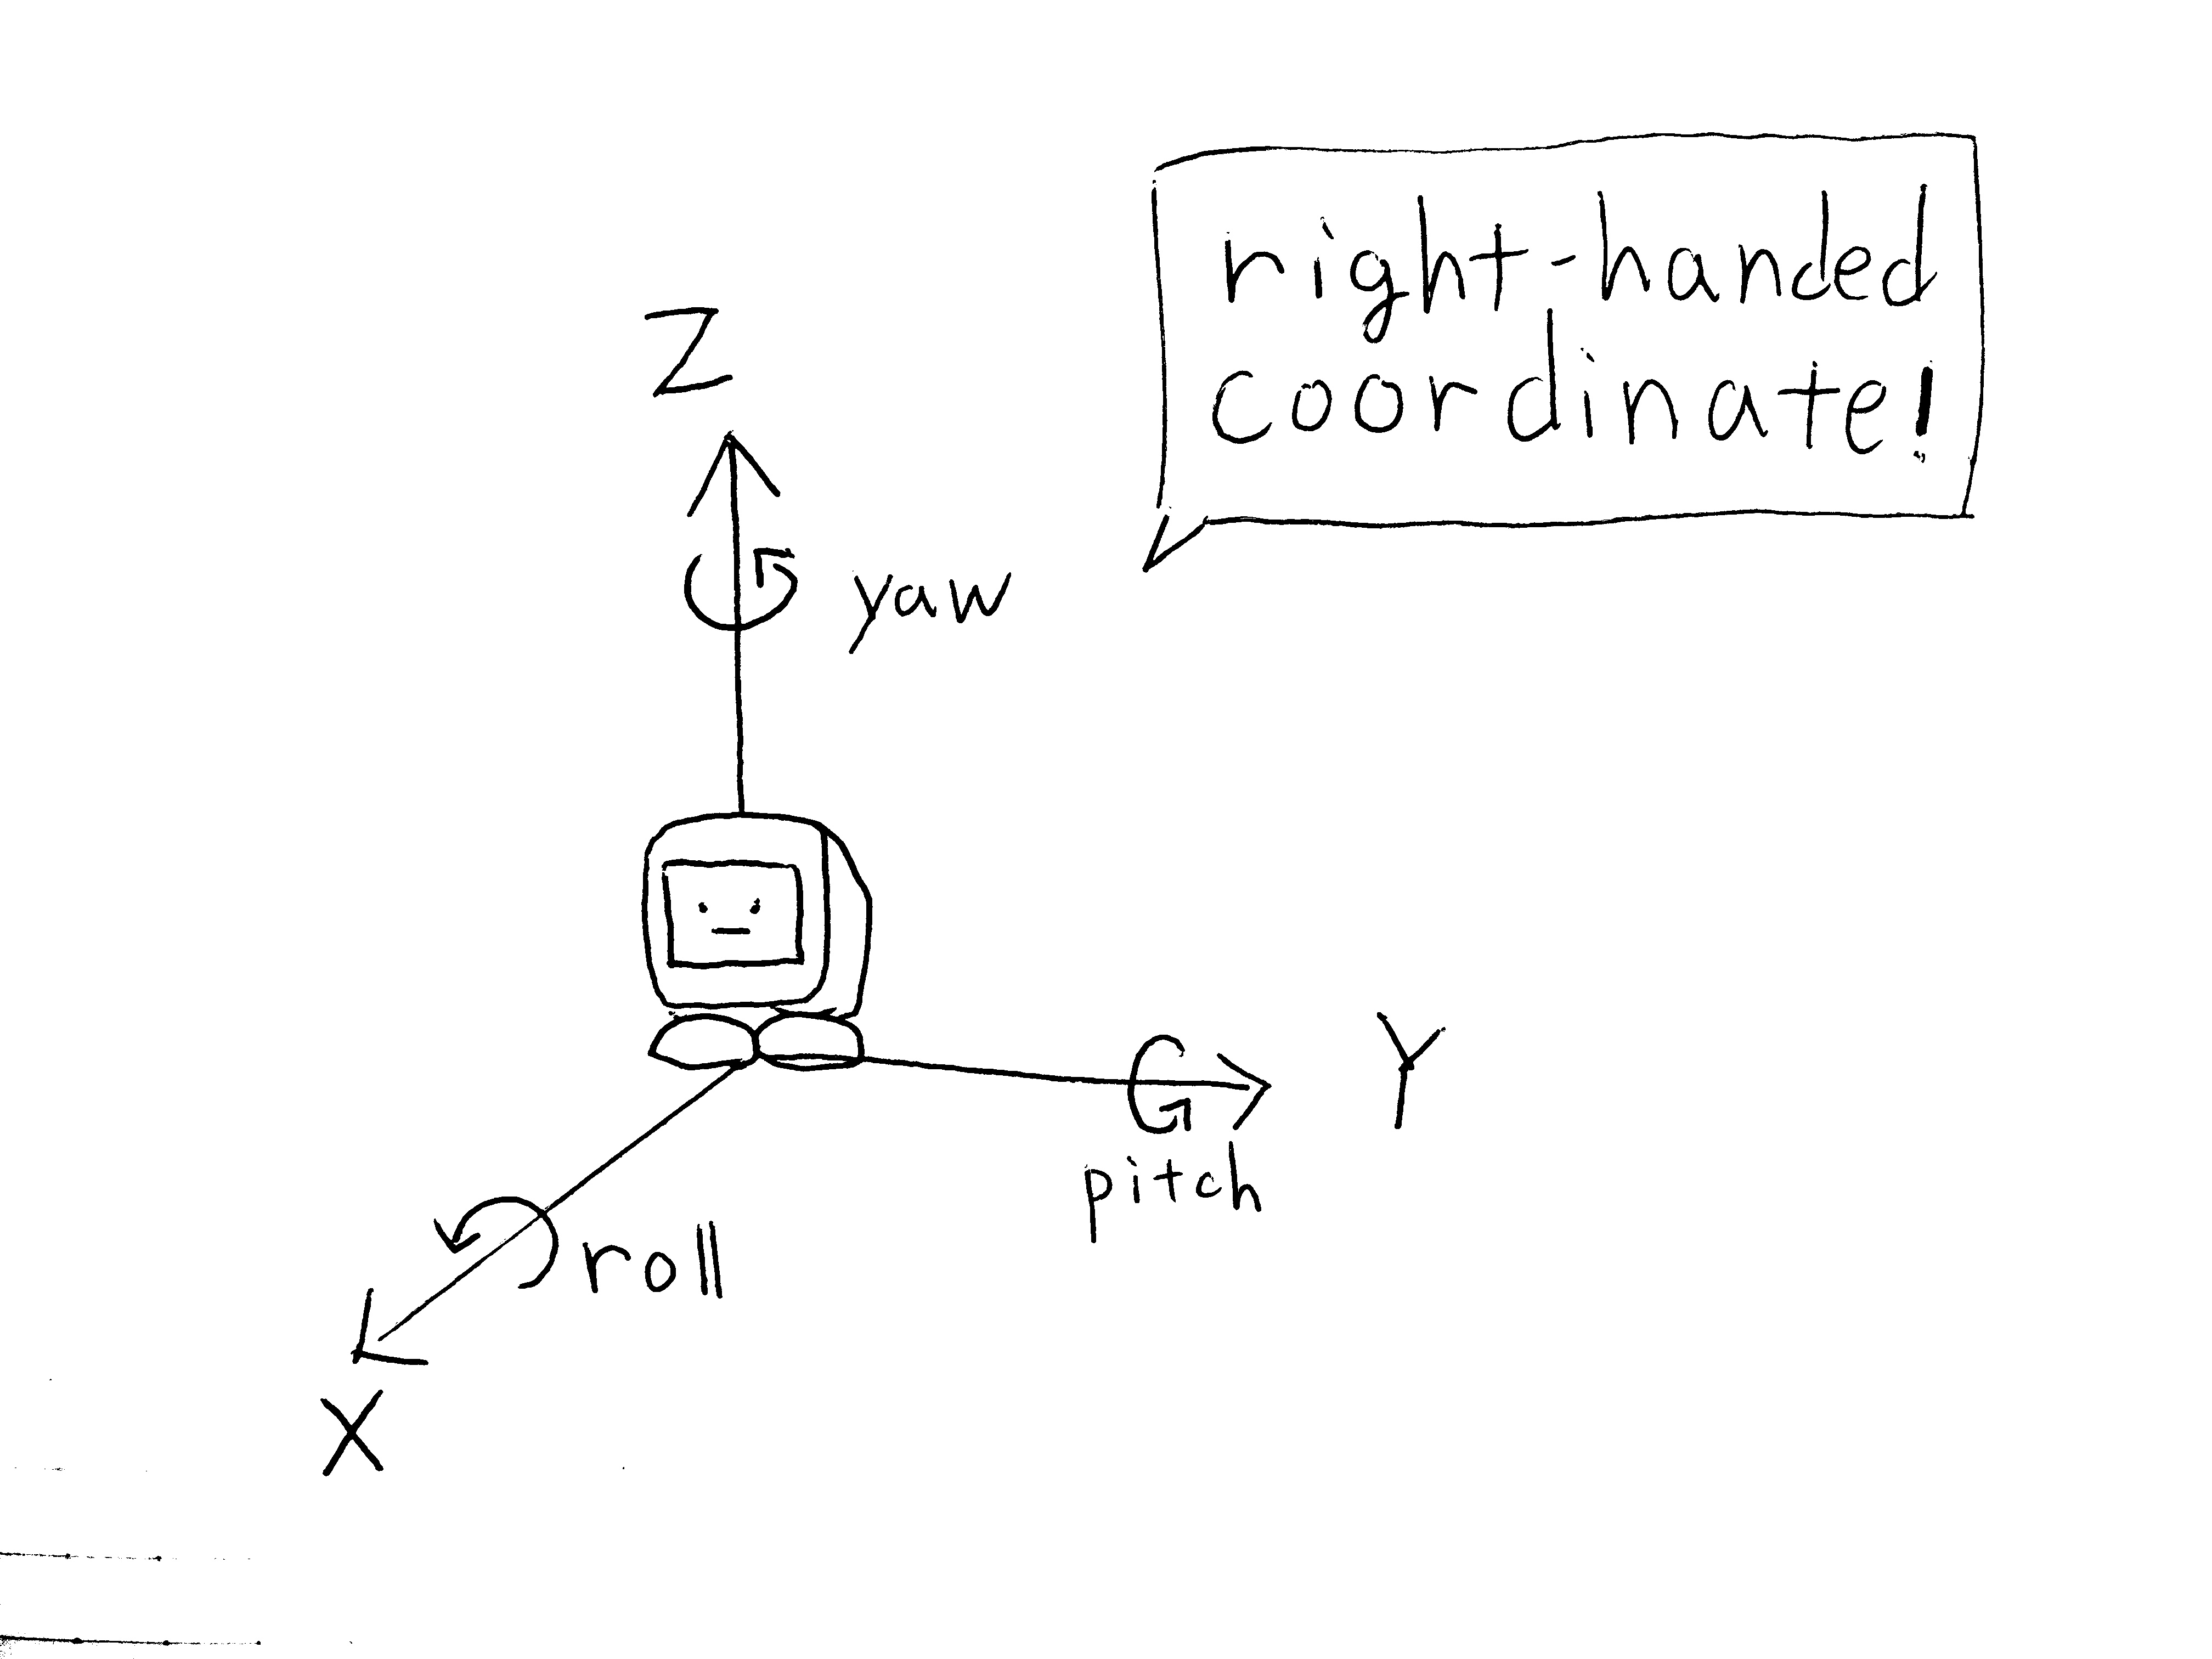 right-handed
coordinate!
Z
yaw
Y
pitch
roll
X